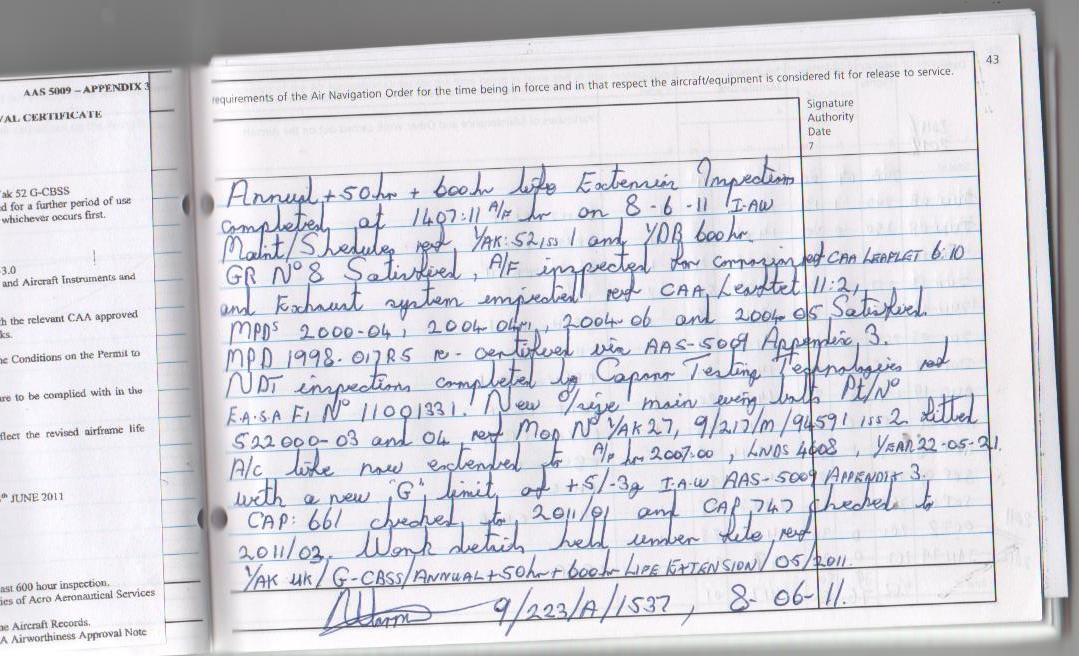 AAS 5009 – APPENDIX 3
VAL CERTIFICATE
ak 52 G-CBSS
d for a further period of use
whichever occurs first.
3.0
and Aircraft Instruments and
h the relevant CAA approved
ks.
ne Conditions on the Permit to
are to be complied with in the
flect the revised airframe life
th JUNE 2011
ast 600 hour inspection.
ies of Acro Aeronautical Services
he Aircraft Records.
A Airworthiness Approval Note
43
requirements of the Air Navigation Order for the time being in force and in that respect the aircraft/equipment is considered fit for release to service.
Signature
Authority
Date
7
Annual + 50hr + 600hr life Extension Inspection
completed at 1407:11 A/F hr on 8-6-11 I-AW
Maint/Shedules ref YAK:52, iss 1 and YDB 600hr.
GR Nº8 Satisfied, A/F inspected for corrosion ref CAA LEAFLET 6:10
and Exhaust system inspected ref CAA Leaflet 11:2,
MPDs 2000-04, 2004-04, 2004-06 and 2004-05 Satisfied.
MPD 1998-017R5 re-certified via AAS-5009 Appendix 3.
NDT inspections completed by Testing Technologies ref
E.A.S.A F1 Nº 11001331. New O/size main wing bolts Pt/Nº
522000-03 and 04, ref Mod Nº YAK27, 9/217/M/94591 iss 2 fitted
A/c life now extended to A/F hrs 2007:00, LNDS 4608, YEAR 22-05-21.
with a new "G" limit of +5/-3g I.A.W AAS-5009 APPENDIX 3.
CAP: 661 checked to 2011/01 and CAP 747 checked to
2011/03. Work details held under file ref
YAK UK/G-CBSS/ANNUAL+50hr+600hr LIFE EXTENSION/05/2011.
9/223/A/1537, 8-06-11.